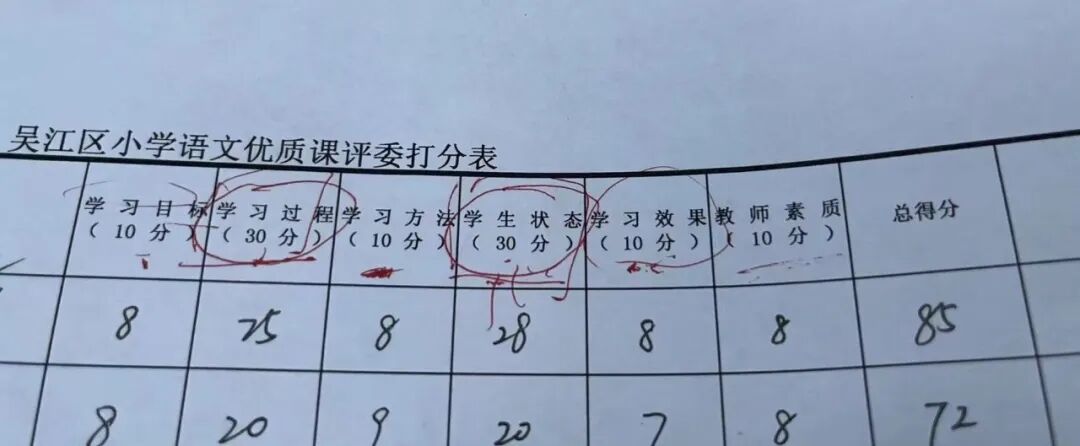 吴江区小学语文优质课评委打分表
学习目标 学习过程 学习方法 学生状态 学习效果 教师素质 总得分
（10分） （30分） （10分） （30分） （10分） （10分）
8 25 8 28 8 8 85
8 20 9 20 7 8 72